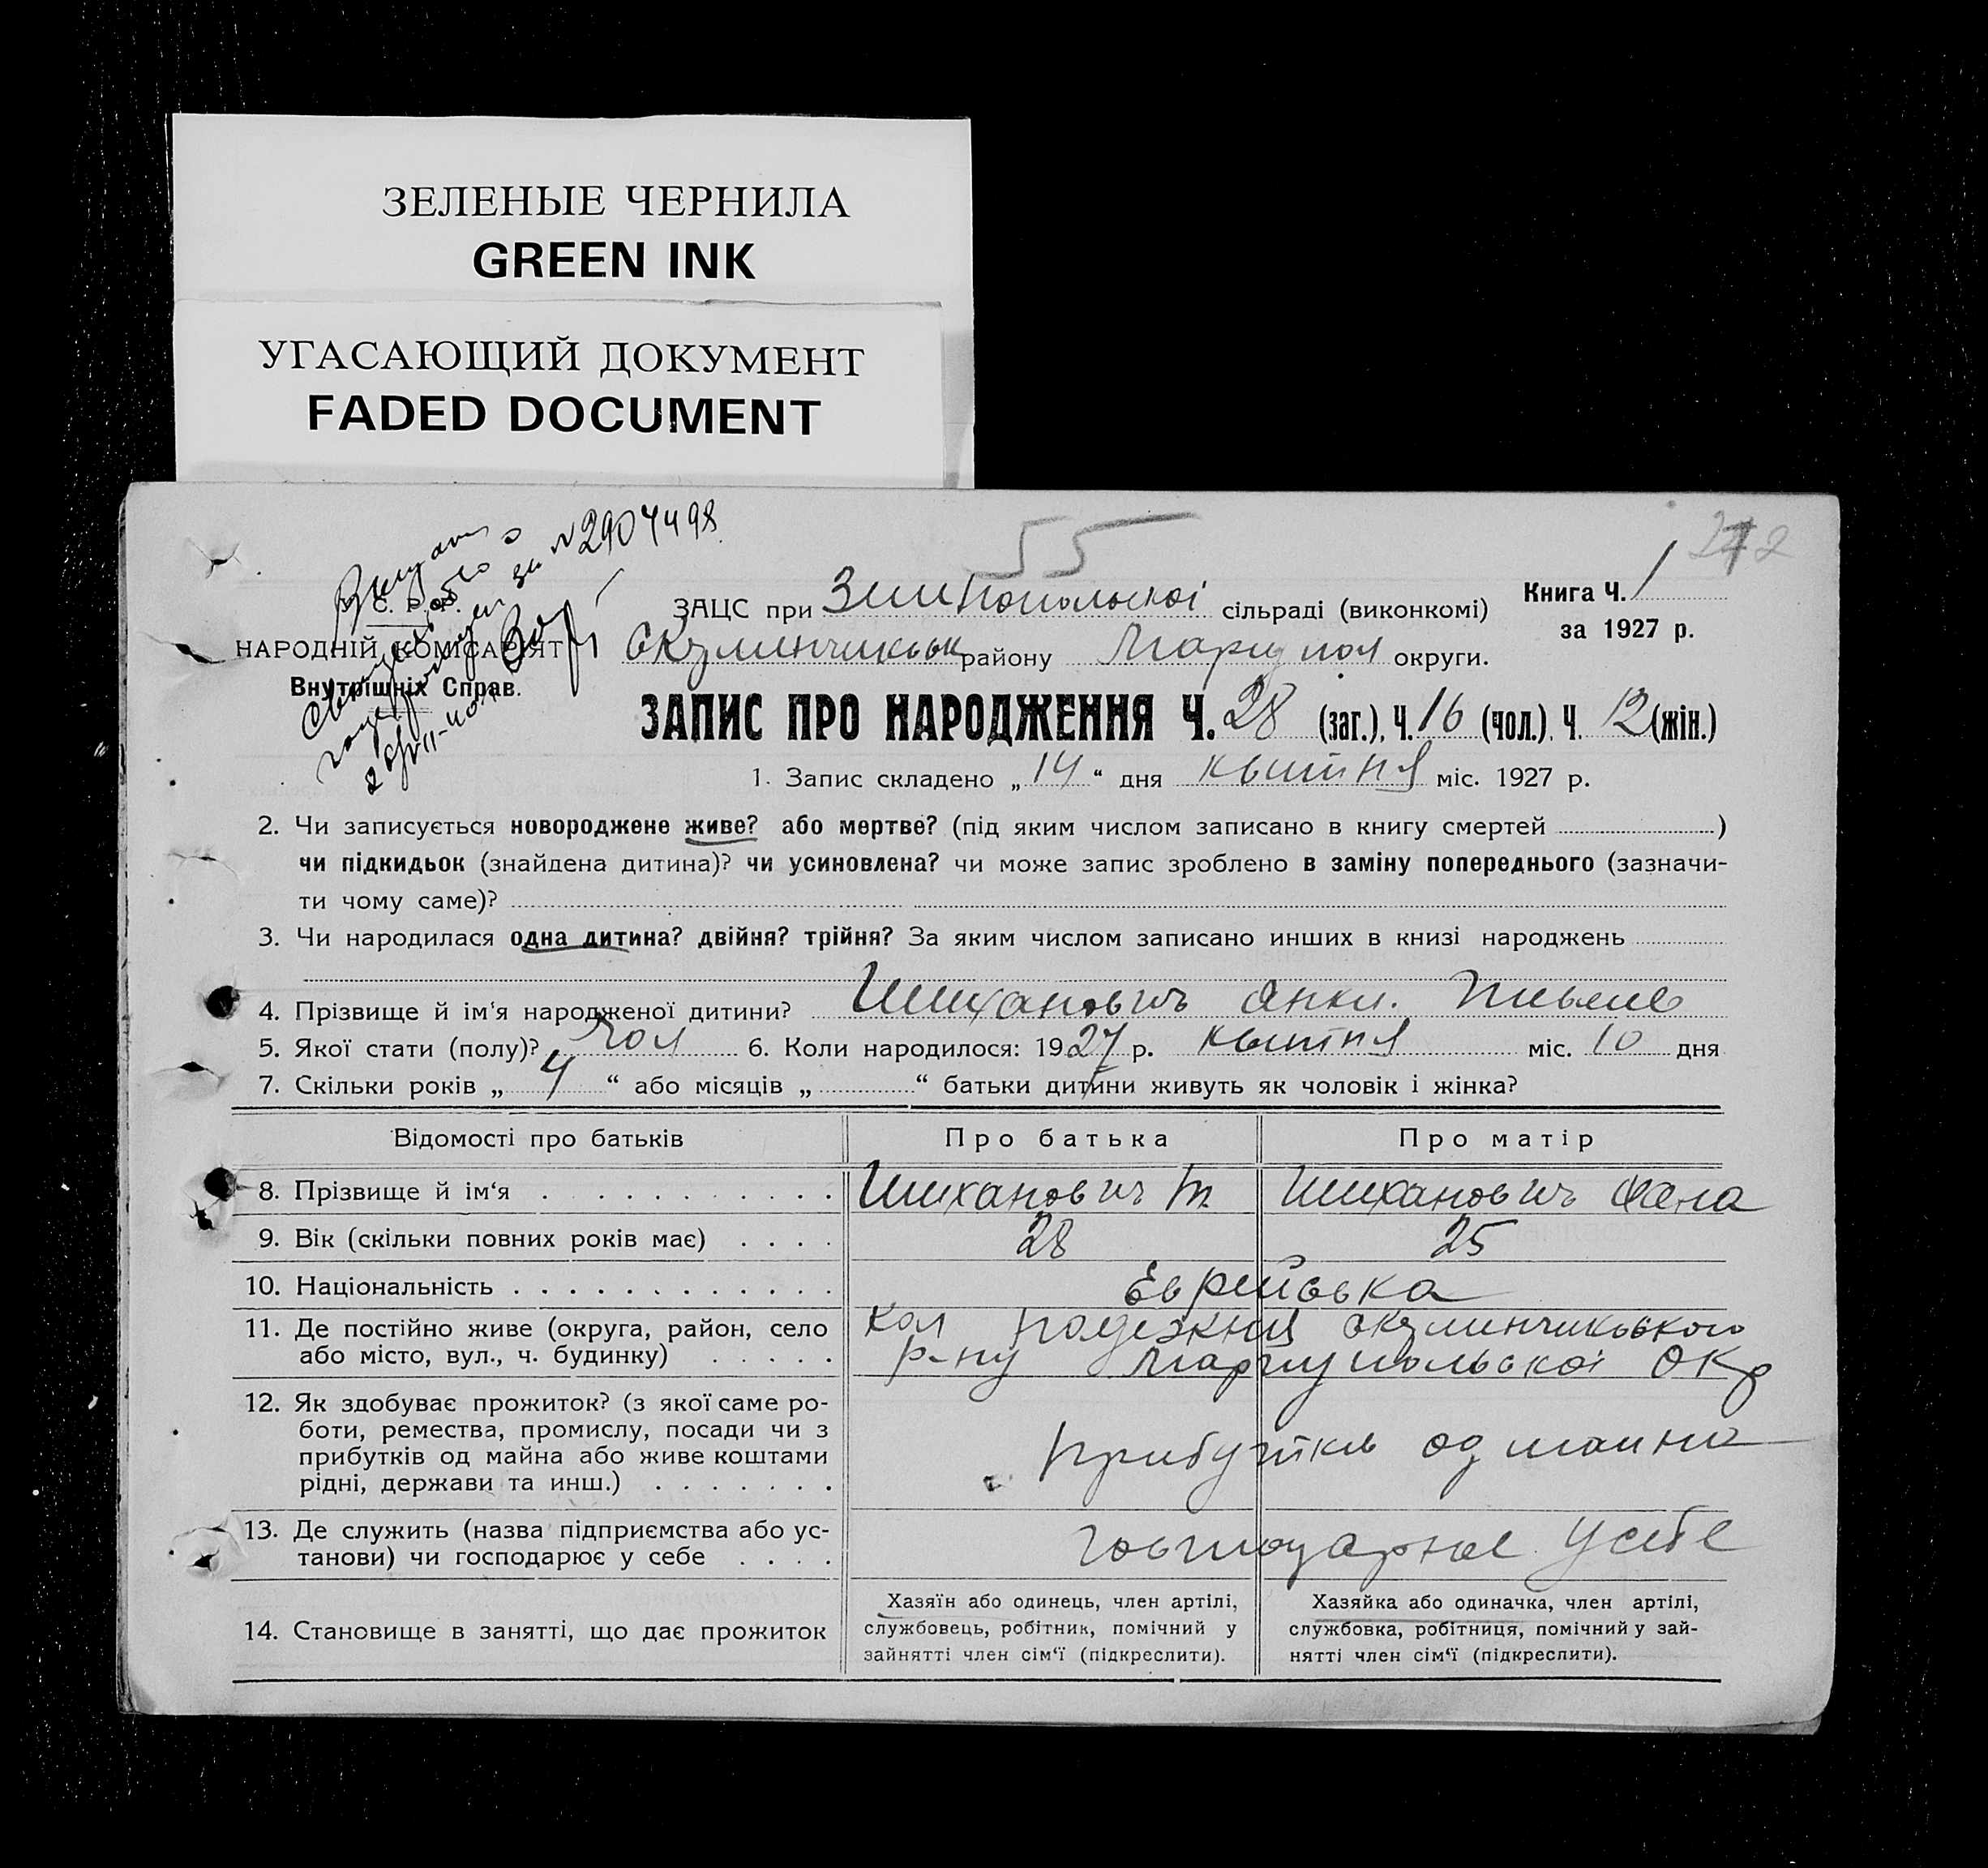 ЗЕЛЕНЫЕ ЧЕРНИЛА
GREEN INK
УГАСАЮЩИЙ ДОКУМЕНТ
FADED DOCUMENT
за №2904498
55
Книга Ч. 1
за 1927 р.
С. Р. Р.
НАРОДНІЙ КОМІСАРІЯТ
Внутрішніх Справ.
ЗАЦС при Зинпопольскої сільраді (виконкомі)
району Маріупол округи.
ЗАПИС ПРО НАРОДЖЕННЯ Ч. 28 (заг.), Ч. 16 (чол.), Ч. 12 (жін.)
1. Запис складено „14“ дня квитня міс. 1927 р.
2. Чи записується новороджене живе? або мертве? (під яким числом записано в книгу смертей )
чи підкидьок (знайдена дитина)? чи усиновлена? чи може запис зроблено в заміну попереднього (зазначи-
ти чому саме)?
3. Чи народилася одна дитина? двійня? трійня? За яким числом записано инших в книзі народжень
4. Прізвище й ім‘я народженої дитини? Шиханович Янкл.
5. Якої стати (полу)? Чол 6. Коли народилося: 1927 р. квитня міс. 10 дня
7. Скільки років „ 4 “ або місяців „ “ батьки дитини живуть як чоловік і жінка?
Відомості про батьків Про батька Про матір
8. Прізвище й ім‘я Шиханович Т. Шиханович Фана
9. Вік (скільки повних років має) 28 25
10. Національність Єврейська
11. Де постійно живе (округа, район, село Кол
або місто, вул., ч. будинку) р-ну Маріупольскої Окр
12. Як здобуває прожиток? (з якої саме ро-
боти, ремества, промислу, посади чи з
прибутків од майна або живе коштами прибутків од майна
рідні, держави та инш.)
13. Де служить (назва підприємства або ус-
танови) чи господарює у себе господарює у себе
14. Становище в занятті, що дає прожиток
Хазяїн або одинець, член артілі,
службовець, робітник, помічний у
зайнятті член сім‘ї (підкреслити).
Хазяйка або одиначка, член артілі,
службовка, робітниця, помічний у зай-
нятті член сім‘ї (підкреслити).